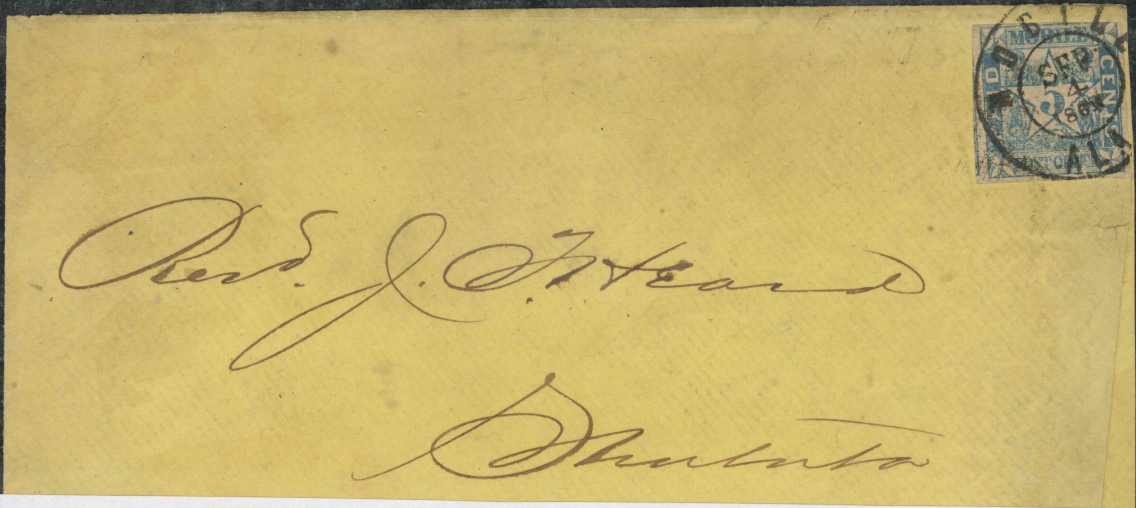 MOBILE
ALA
SEP
4
MOBILE
CEN
5
Revd. J. T. Heard
Shubuta